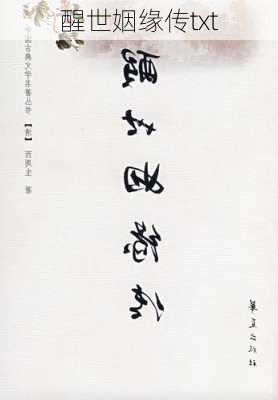 醒世姻缘传txt
中国古典文学名著丛书 【清】 西周生 著
华夏出版社